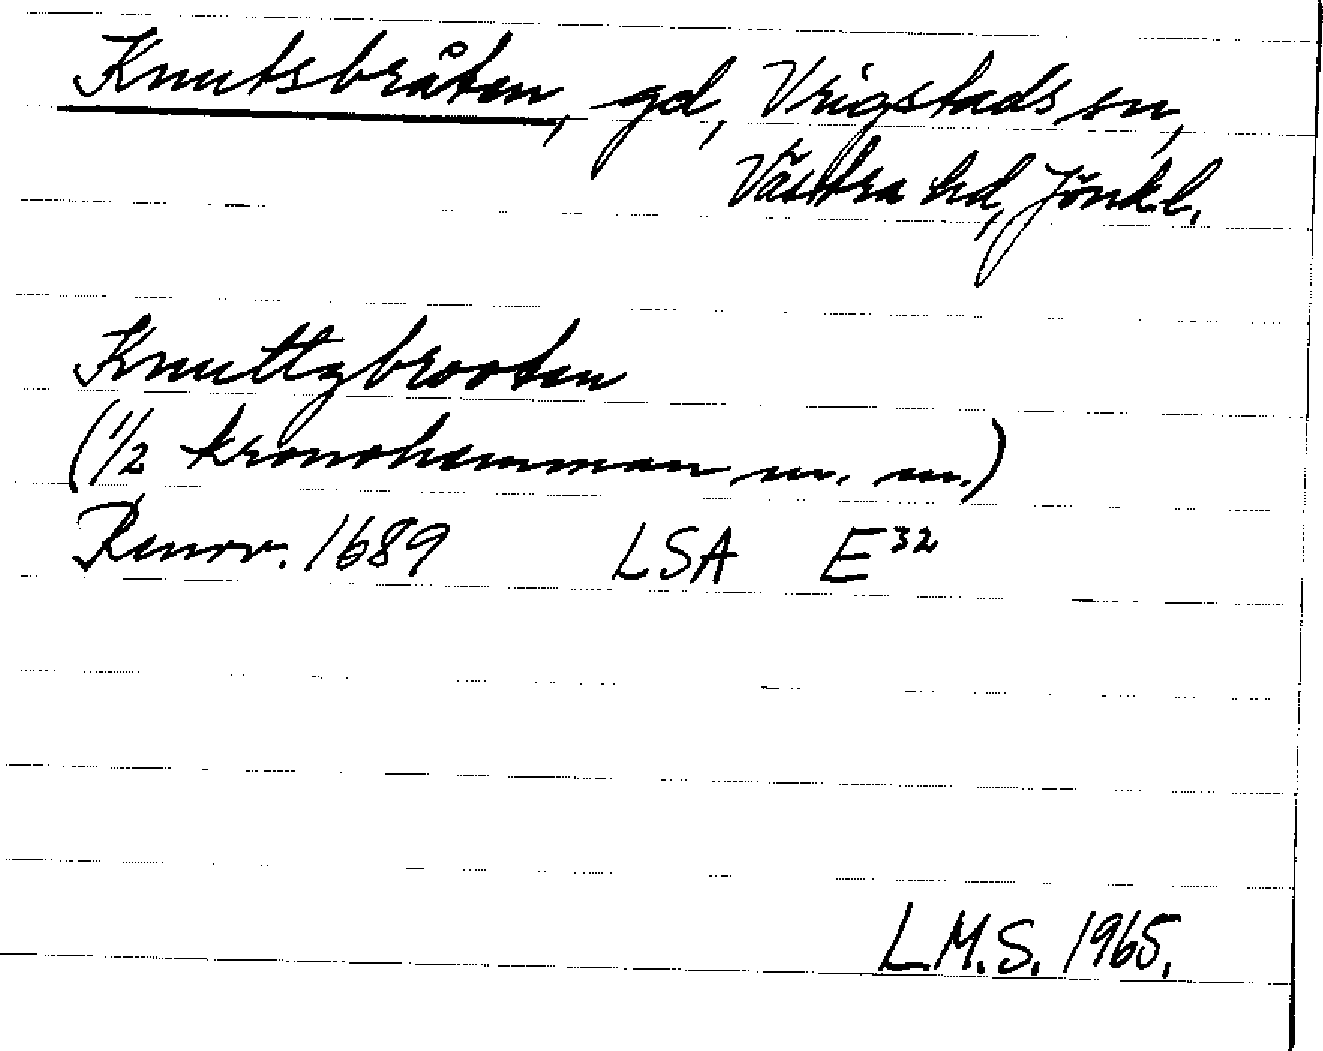 Knutsbråten, gd, Vrigstads sn,
Västra hd, Jönk.l.
Knuttzbrooten
(1/2 kronohemman m. m.)
Renov. 1689 LSA E³²
L.M.S. 1965.